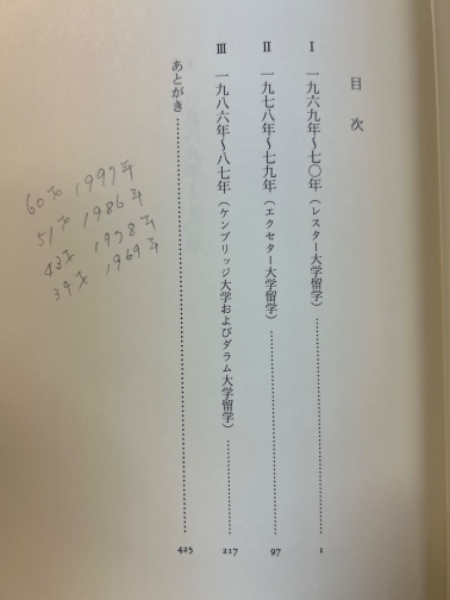 目次
I 一九六九年〜七〇年（レスター大学留学）……1
II 一九七八年〜七九年（エクセター大学留学）……97
III 一九八六年〜八七年（ケンブリッジ大学およびダラム大学留学）……217
あとがき……425
60才 1997年
51才 1986年
43才 1978年
34才 1969年